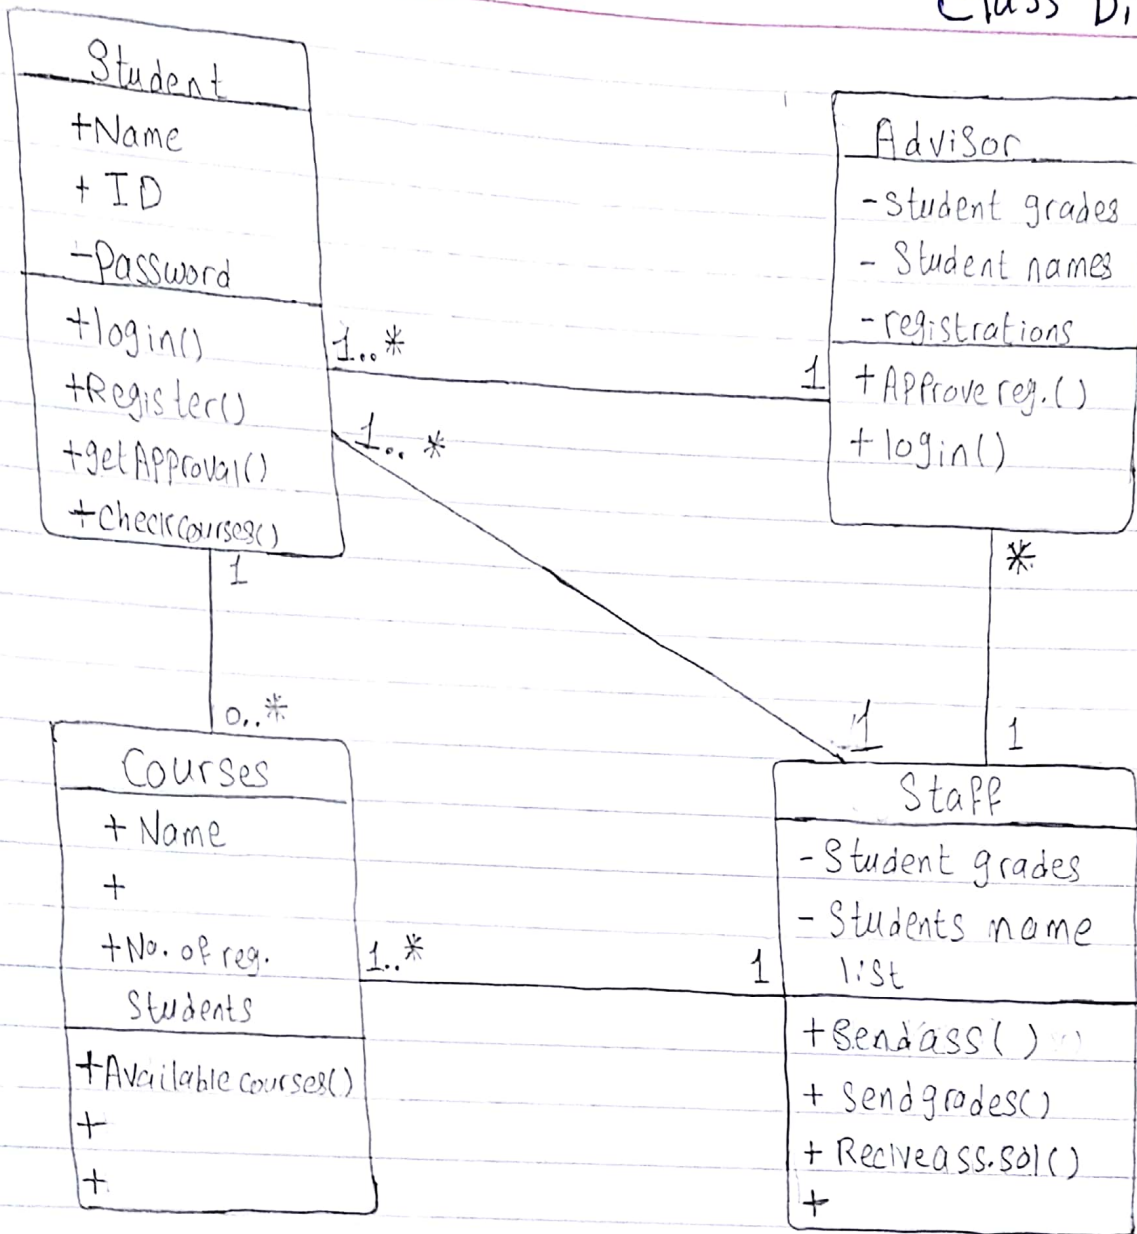 Class Di
Student
+Name
+ ID
-Password
+login()
+Register()
+getApproval()
+Checkcourses()
Advisor
-Student grades
- Student names
-registrations
+Approve reg.()
+login()
1..*
1
1..*
1
*
1
1
0..*
Courses
+ Name
+
+No. of reg.
Students
+Available courses()
+
+
1..*
1
Staff
- Student grades
- Students name
list
+Sendass()
+ Sendgrades()
+ Reciveass.sol()
+